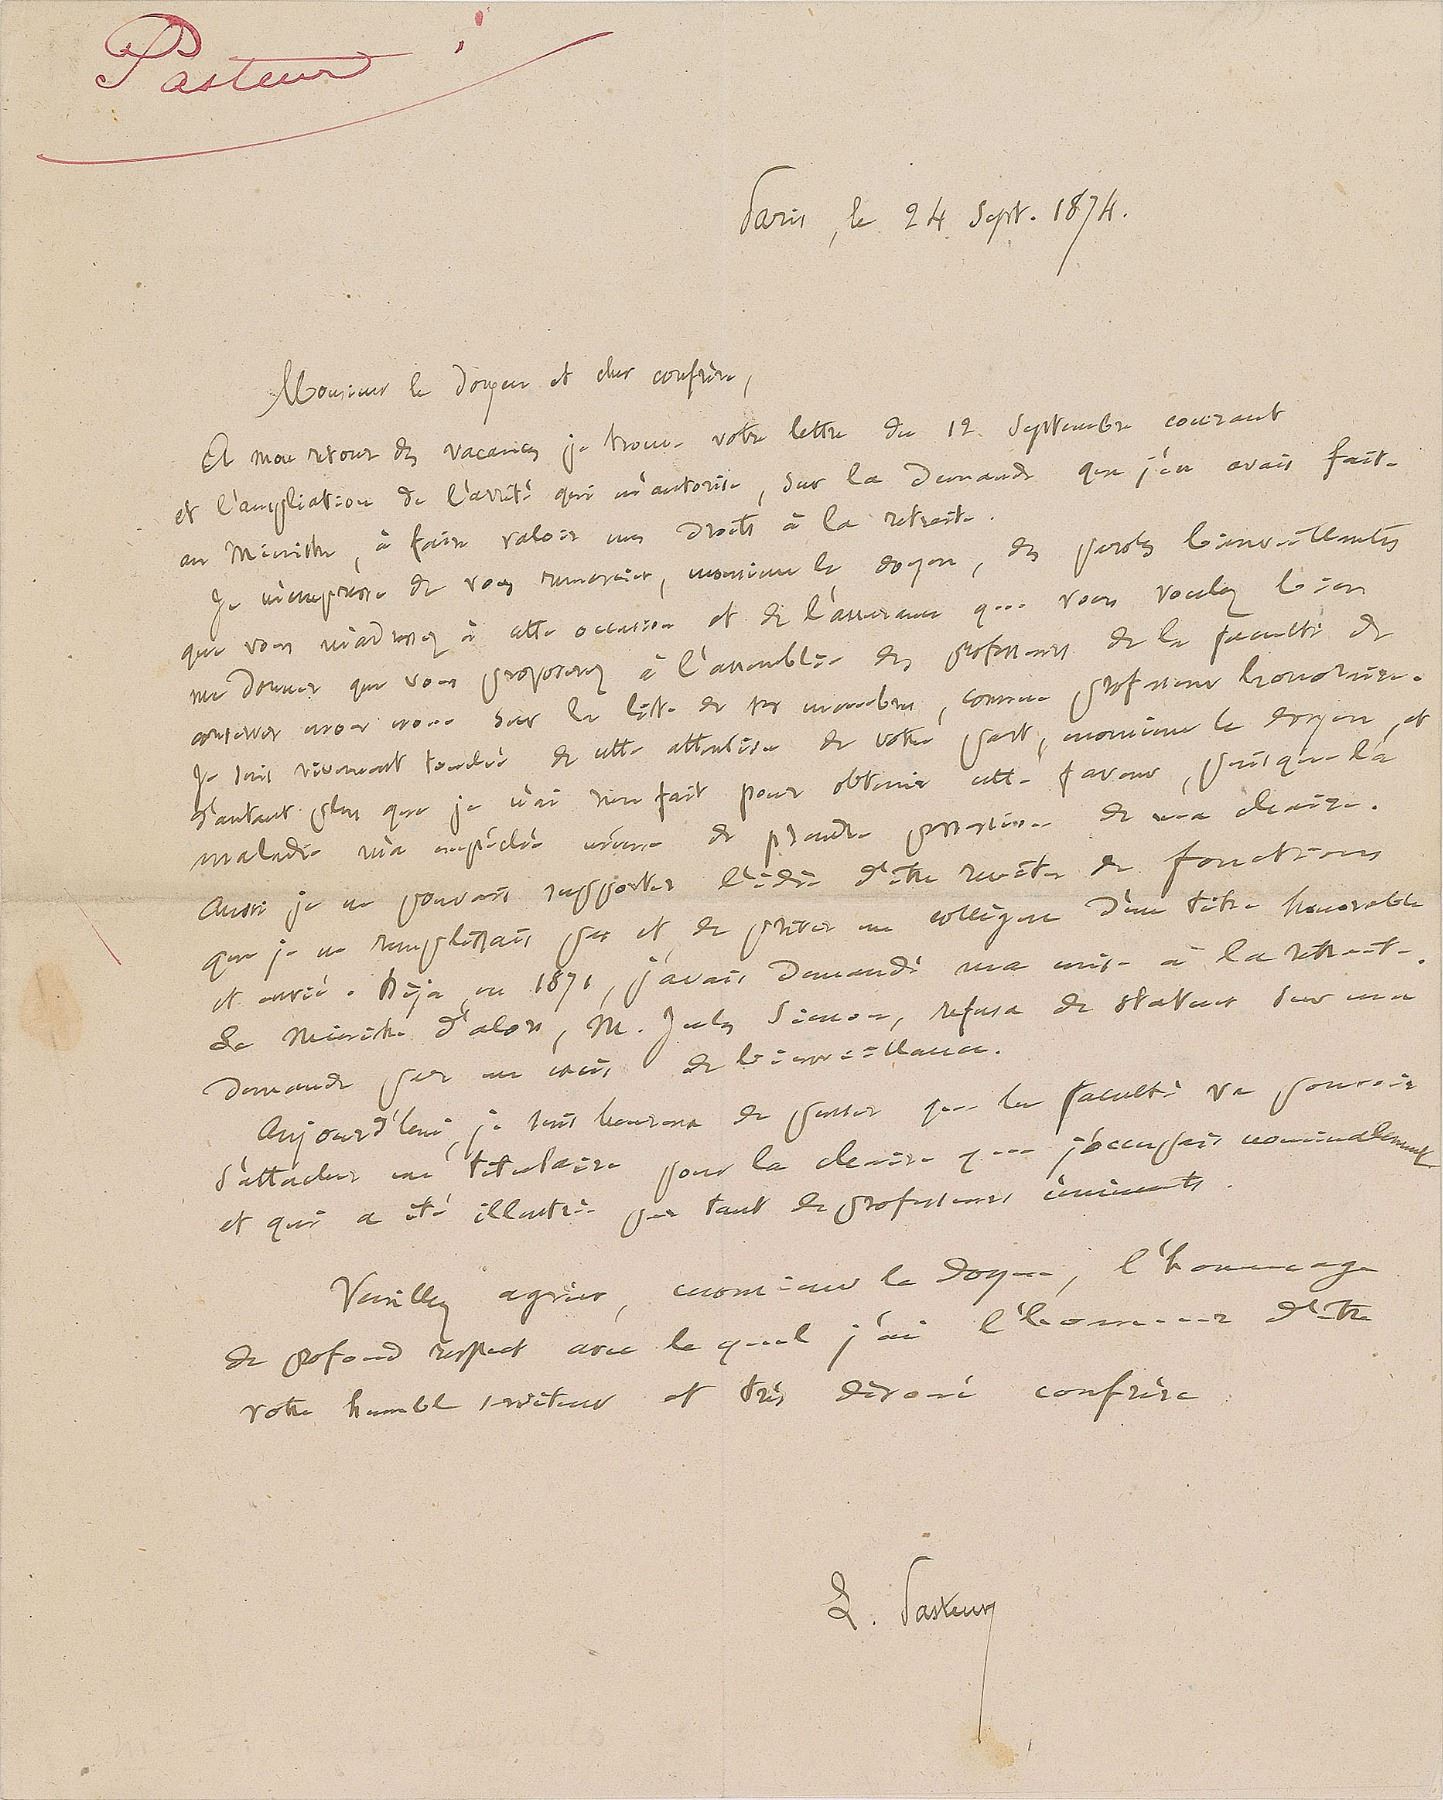 Pasteur
Paris, le 24 Sept. 1874.
Monsieur le Doyen et cher confrère,
A mon retour des vacances je trouve votre lettre du 12 Septembre courant
et l'ampliation de l'arrêté qui m'autorise, sur la demande que j'en avais faite
au Ministre, à faire valoir mes droits à la retraite.
Je m'empresse de vous remercier, monsieur le doyen, des paroles bienveillantes
que vous m'adressez à cette occasion et de l'assurance que vous voulez bien
me donner que vous proposerez à l'assemblée des professeurs de la faculté de
conserver mon nom sur la liste de ses membres, comme professeur honoraire.
Je suis vivement touché de cette attention de votre part, monsieur le doyen, et
d'autant plus que je n'ai rien fait pour obtenir cette faveur, puisque la
maladie m'a empêché même de prendre possession de ma chaire.
Aussi je ne pouvais supporter l'idée d'être revêtu de fonctions
que je ne remplissais pas et de priver un collègue d'un titre honorable
et envié. Déjà en 1871, j'avais demandé ma mise à la retraite.
Le Ministre d'alors, M. Jules Simon, refusa de statuer sur ma
demande par un excès de bienveillance.
Aujourd'hui, je suis heureux de penser que la faculté va pouvoir
s'attacher un titulaire pour la chaire que j'occupais nominalement
et qui a été illustrée par tant de professeurs éminents.
Veuillez agréer, monsieur le Doyen, l'hommage
de profond respect avec le quel j'ai l'honneur d'être
votre humble serviteur et très dévoué confrère
L. Pasteur